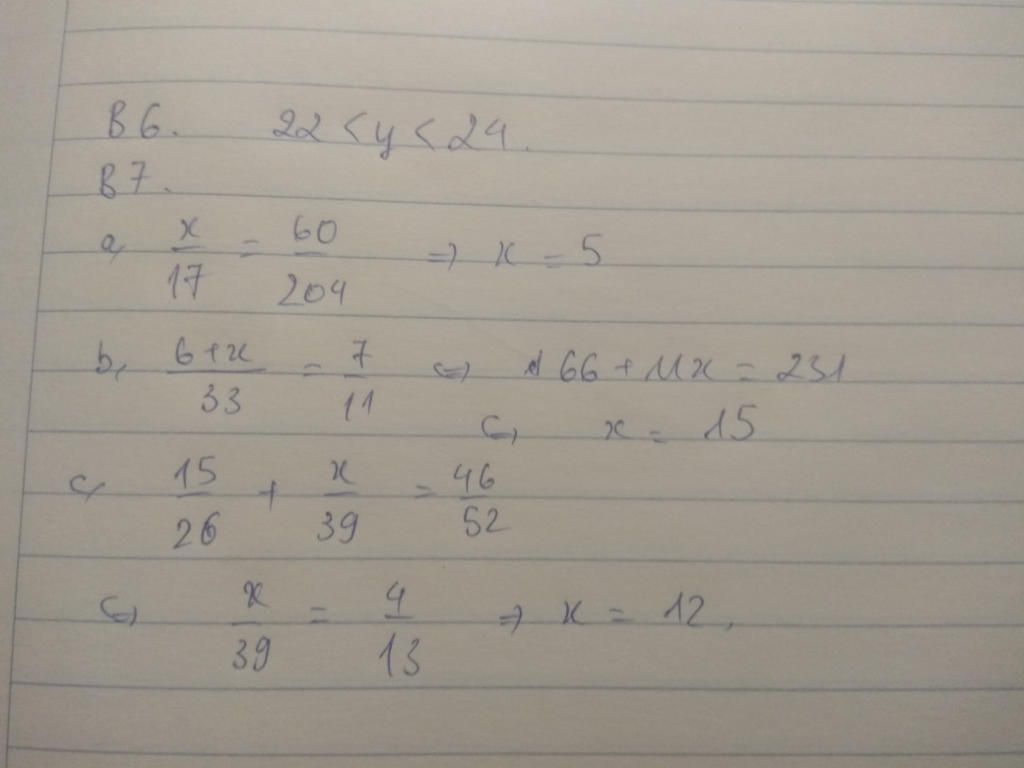 B6. 22 < y < 24.
B7.
a, x/17 = 60/204 => x = 5
b, (6+x)/33 = 7/11 <=> 66 + 11x = 231
<=> x = 15
c, 15/26 + x/39 = 46/52
<=> x/39 = 4/13 => x = 12.